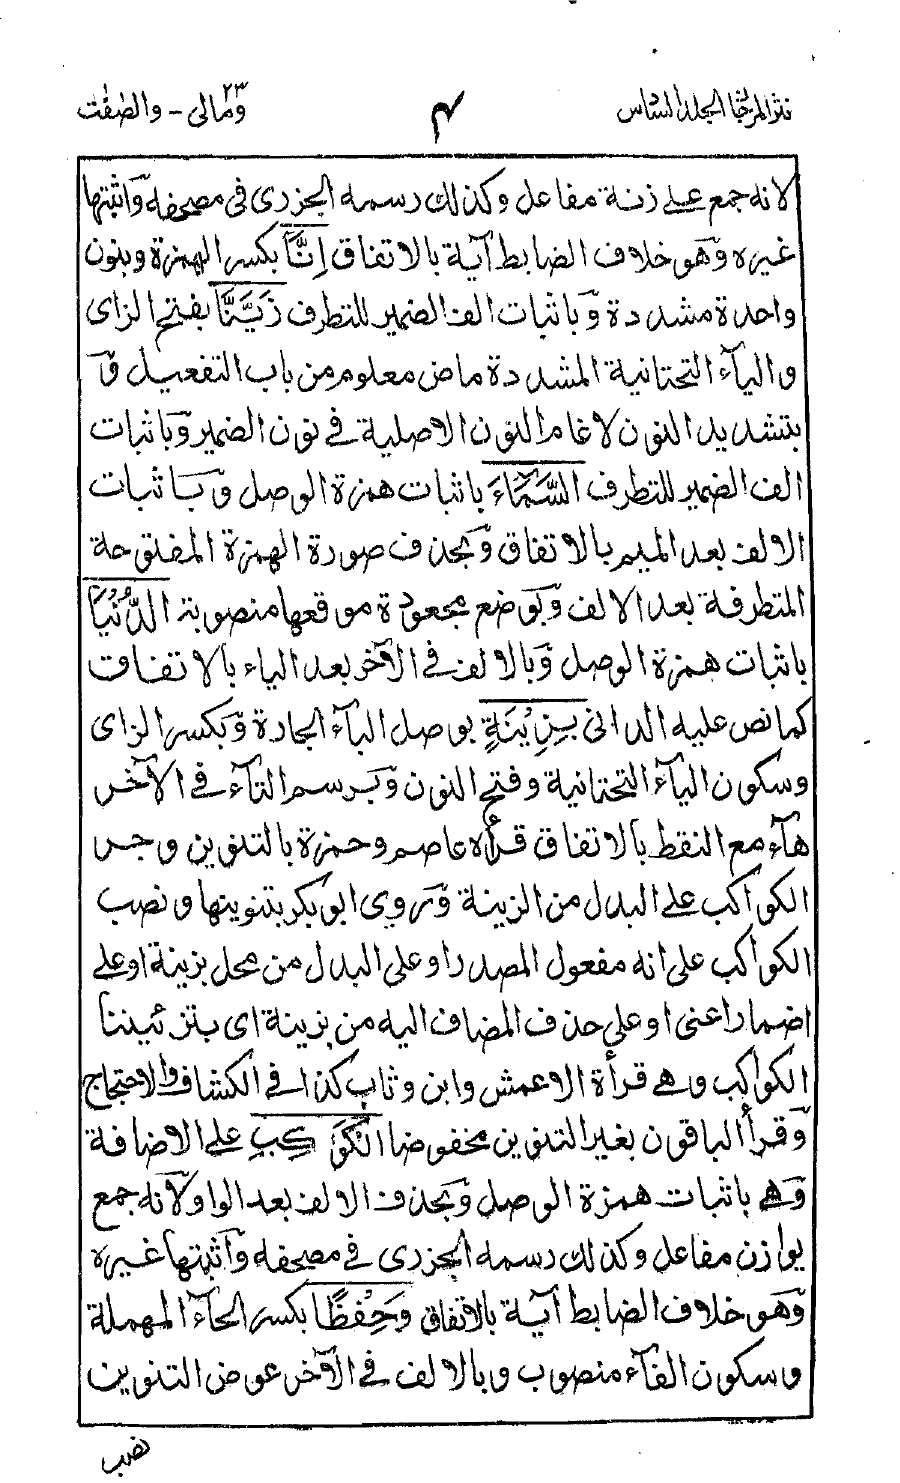 نثر المرجان المجلد السادس ۴ ومالی ۲۳ - والصفت
لانه جمع على زنة مفاعل وكذلك رسمه الجزرى فى مصحفه وَاثبتها
غيره وَهو خلاف الضابط آية بالاتفاق اِنَّا بكسر الهمزة وبنون
واحدة مشددة وَباثبات الف الضمير للتطرف زَيَّنَّا بفتح الزاى
والياء التحتانية المشددة ماض معلوم من باب التفعيل وَ
بتشديد النون لادغام النون الاصلية فى نون الضمير وَباثبات
الف الضمير للتطرف السَّمَآءَ باثبات همزة الوصل وَباثبات
الالف بعد الميم بالاتفاق وَبحذف صورة الهمزة المفتوحة
المتطرفة بعد الالف وَبوضع مجعودة موقعها منصوبة الدُّنْيَا
باثبات همزة الوصل وَبالالف فى الآخر بعد الياء بالاتفاق
كما نص عليه الدانى بِزِيْنَةٍ بوصل الباء الجارة وَبكسر الزاى
وسكون الياء التحتانية وفتح النون وَبرسم التاء فى الآخر
هاء مع النقط بالاتفاق قرأه عاصم وحمزة بالتنوين وجر
الكواكب على البدل من الزينة وَروى ابو بكر بتنوينها ونصب
الكواكب على انه مفعول المصدر او على البدل من محل بزينة او على
اضمار اعنى او على حذف المضاف اليه من بزينة اى بتزئيننا
الكواكب وهى قرأة الاعمش وابن وثاب كذا فى الكشاف والاحتجاج
وَقرأ الباقون بغير التنوين مخفوضا الْكَوَ كِبِ على الاضافة
وَهى باثبات همزة الوصل وَبحذف الالف بعد الواو لانه جمع
يوازن مفاعل وكذلك رسمه الجزرى فى مصحفه وَاثبتها غيره
وَهو خلاف الضابط آية بالاتفاق وَحِفْظًا بكسر الحاء المهملة
وسكون الفاء منصوب وبالالف فى الآخر عوض التنوين
نصب